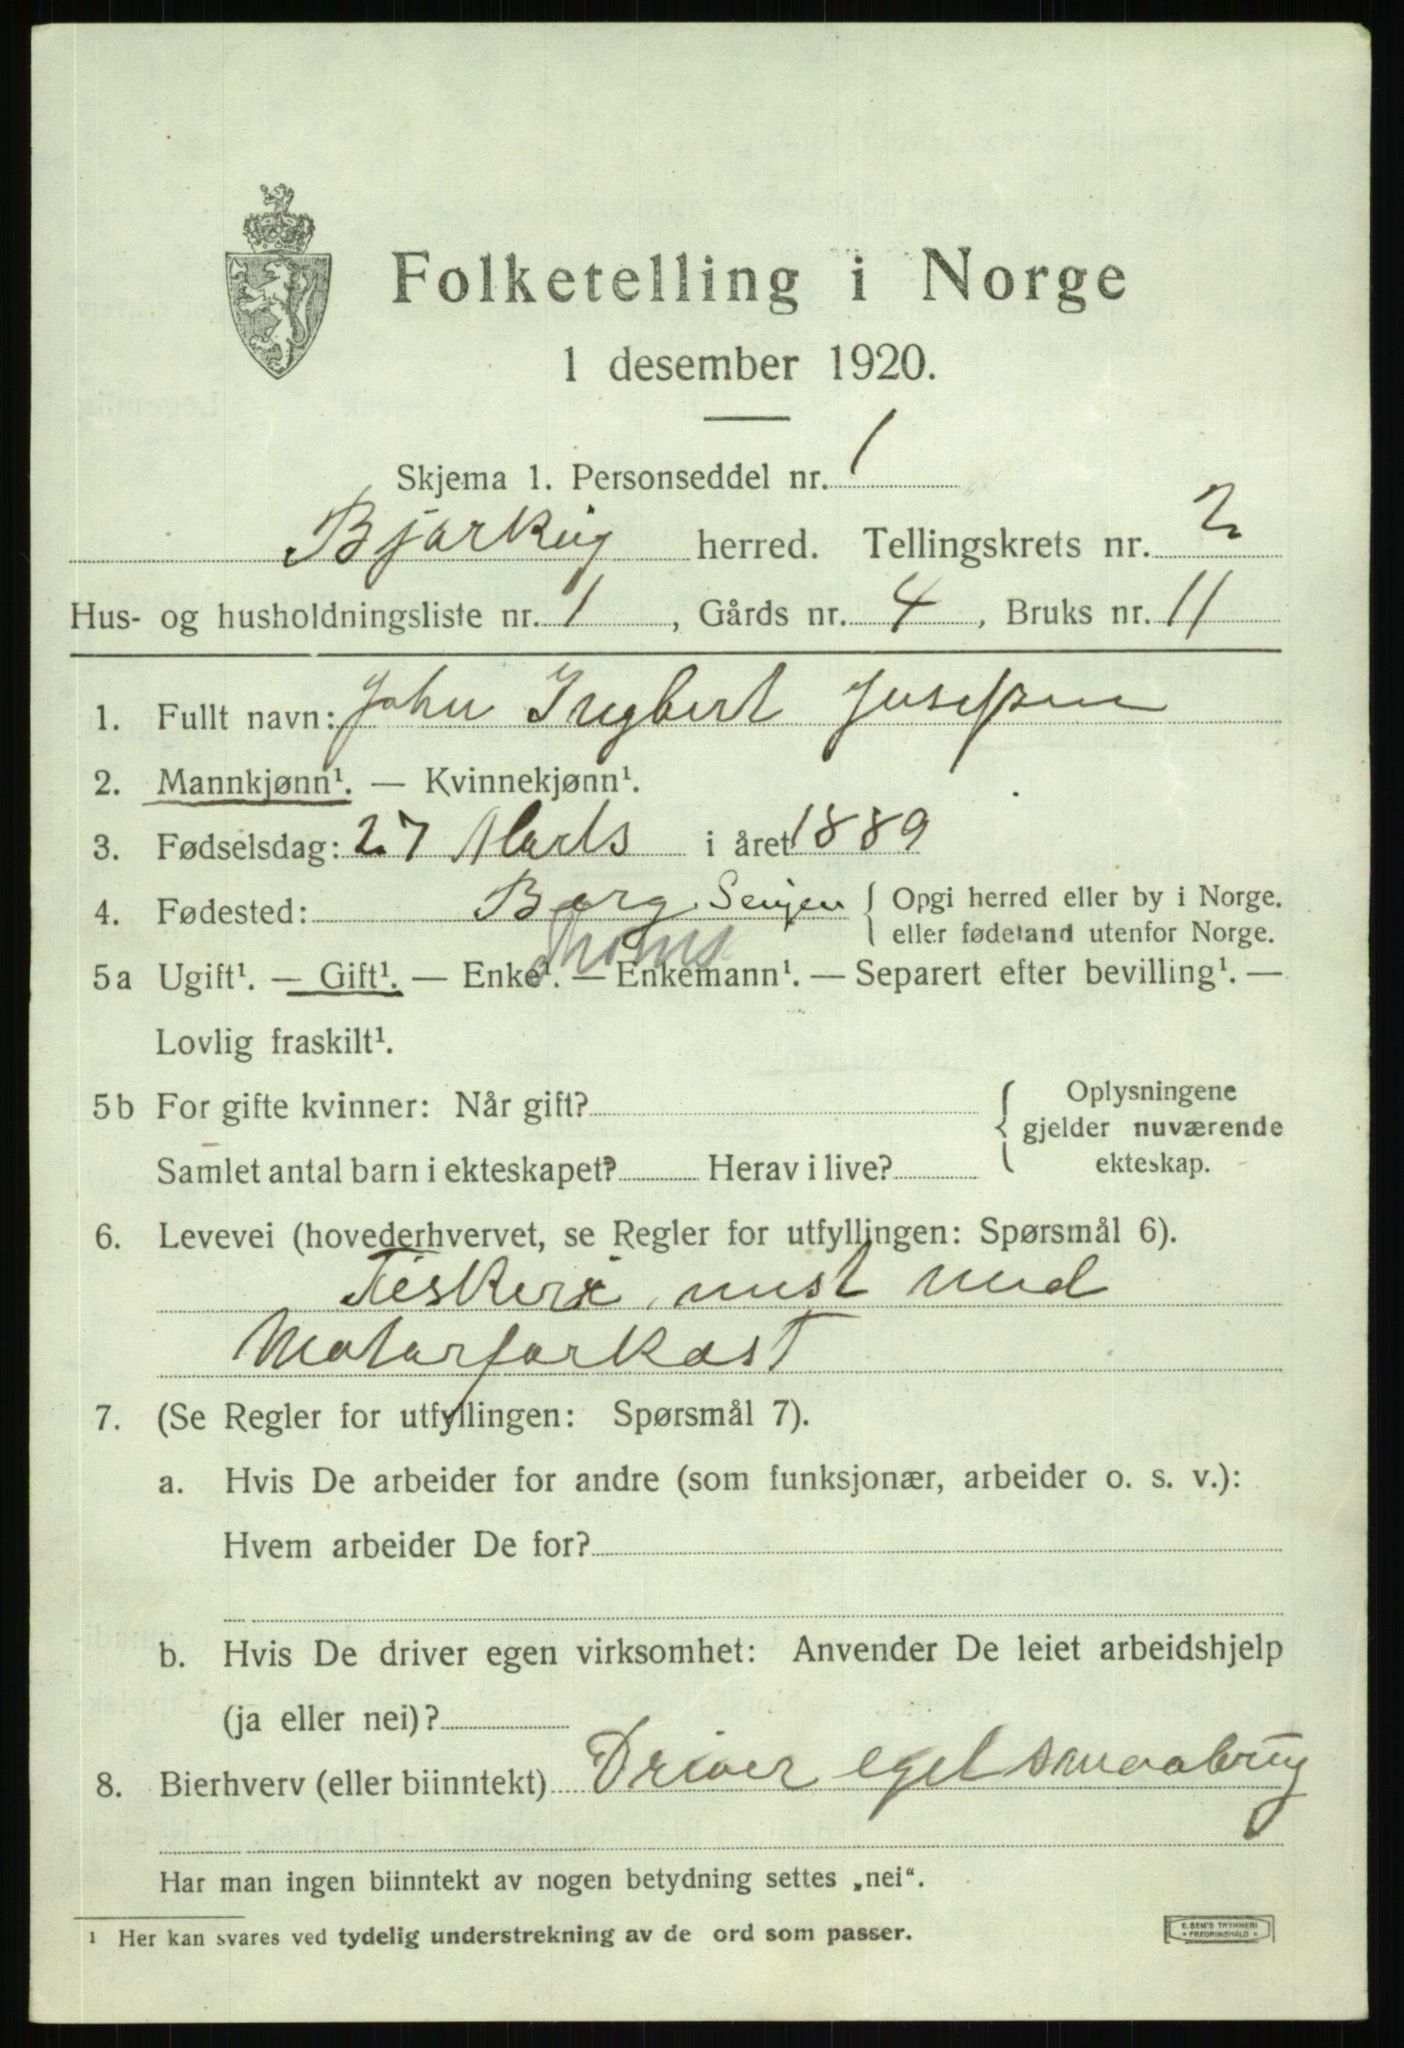 Folketelling i Norge
1 desember 1920.
Skjema 1. Personseddel nr. 1
Bjarköy herred. Tellingskrets nr. 2
Hus- og husholdningsliste nr. 1, Gårds nr. 4, Bruks nr. 11
1. Fullt navn: John Ingbert Josefsen
2. Mannkjønn¹. — Kvinnekjønn¹.
3. Fødselsdag: 27 Marts i året 1889
4. Fødested: Berg Senjen { Opgi herred eller by i Norge.
eller fødeland utenfor Norge.
Troms
5a Ugift¹. — Gift¹. — Enke¹. — Enkemann¹. — Separert efter bevilling¹. —
Lovlig fraskilt¹.
5b For gifte kvinner: Når gift? { Oplysningene
gjelder nuværende
Samlet antal barn i ekteskapet? Herav i live? ekteskap.
6. Levevei (hovederhvervet, se Regler for utfyllingen: Spørsmål 6).
Fiskeri, mest med
Motorfarkost
7. (Se Regler for utfyllingen: Spørsmål 7).
a. Hvis De arbeider for andre (som funksjonær, arbeider o. s. v.):
Hvem arbeider De for?
b. Hvis De driver egen virksomhet: Anvender De leiet arbeidshjelp
(ja eller nei)?
8. Bierhverv (eller biinntekt) Driver eget smaabrug
Har man ingen biinntekt av nogen betydning settes „nei“.
¹ Her kan svares ved tydelig understrekning av de ord som passer.
E. SEM'S TRYKKERI
* FREDRIKSHALD *